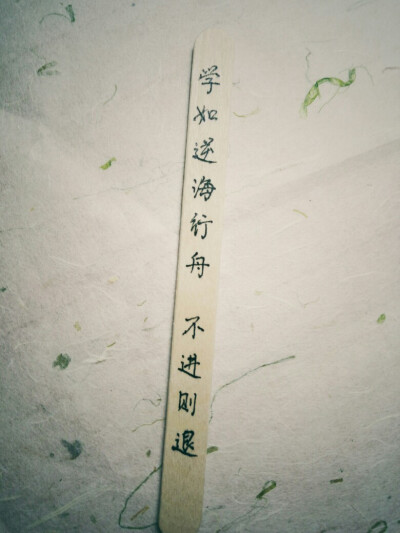 学如逆海行舟 不进则退